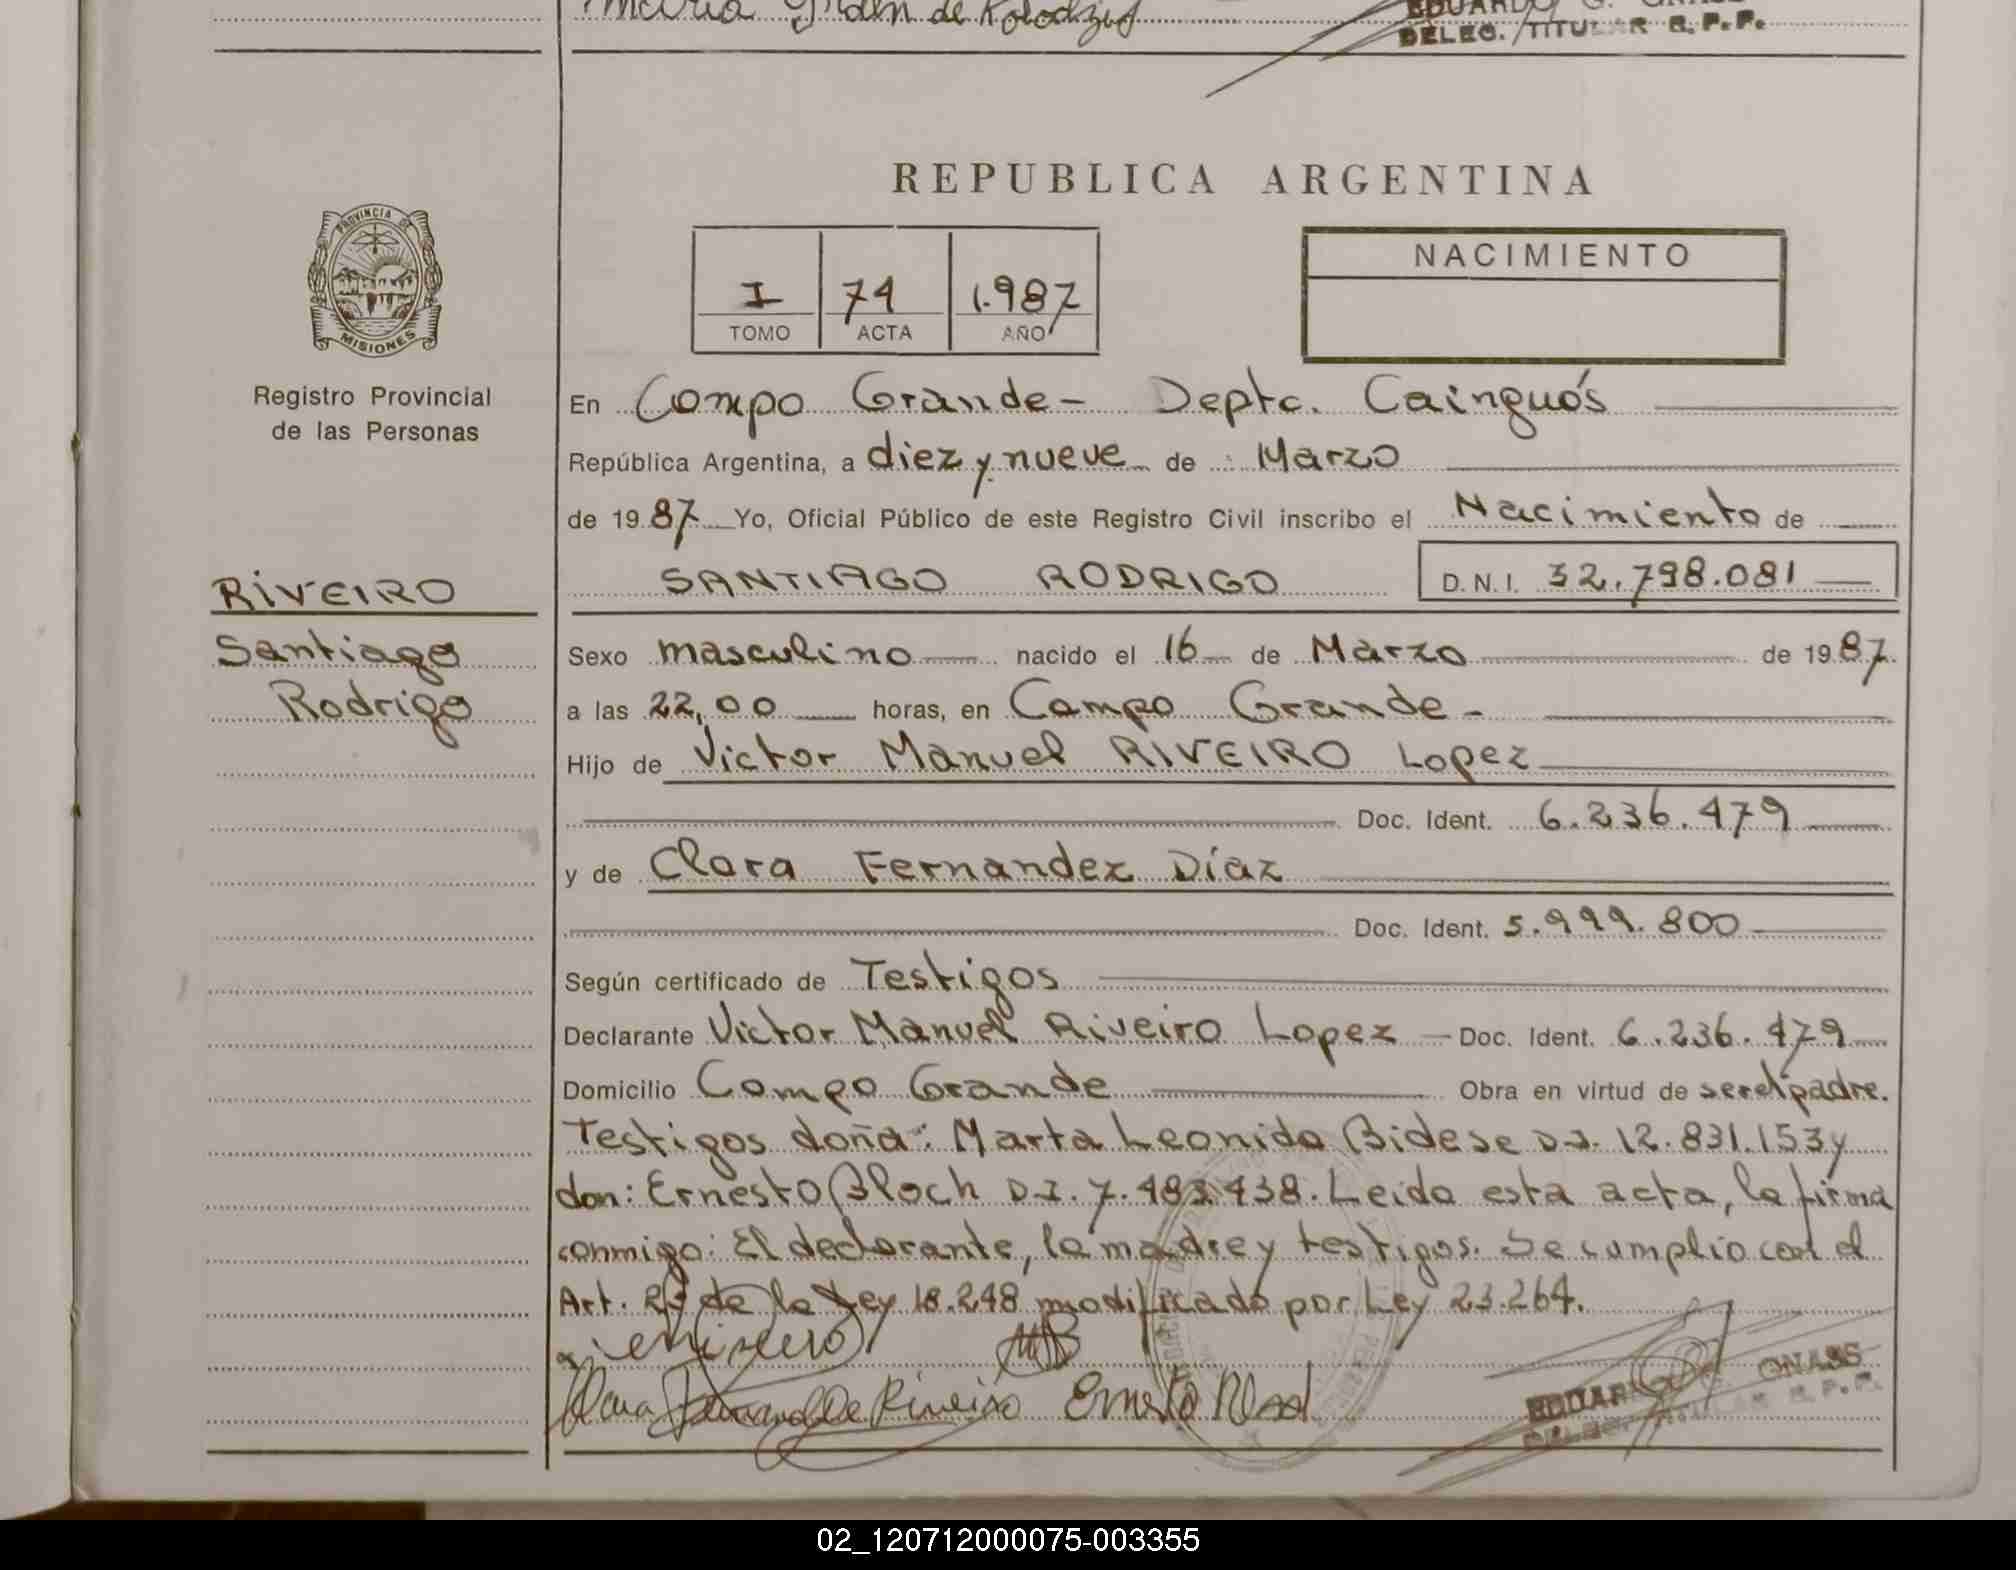 Maria de Kolodziej
DELEG. TITULAR R.P.P.
REPUBLICA ARGENTINA
PROVINCIA DE
MISIONES
Registro Provincial
de las Personas
I 74 1.987
TOMO ACTA AÑO
NACIMIENTO
En Campo Grande - Depto. Cainguás
República Argentina, a diez y nueve de Marzo
de 1987 Yo, Oficial Público de este Registro Civil inscribo el Nacimiento de
RIVEIRO
Santiago
Rodrigo
SANTIAGO RODRIGO D.N.I. 32.798.081
Sexo masculino nacido el 16 de Marzo de 1987
a las 22,00 horas, en Campo Grande -
Hijo de Victor Manuel RIVEIRO Lopez
Doc. Ident. 6.236.479
y de Clara Fernandez Díaz
Doc. Ident. 5.999.800
Según certificado de Testigos
Declarante Victor Manuel Riveiro Lopez - Doc. Ident. 6.236.479
Domicilio Campo Grande Obra en virtud de ser el padre.
Testigos doña: Marta Leonida Bidese D.I. 12.831.153 y
don: Ernesto Bloch D.I. 7.483.438. Leida esta acta, la firma
conmigo: El declarante, la madre y testigos. Se cumplio con el
Art. de la Ley 18.248 modificado por Ley 23.264.
Clara Fernandez de Riveiro Ernesto Bloch
02_120712000075-003355